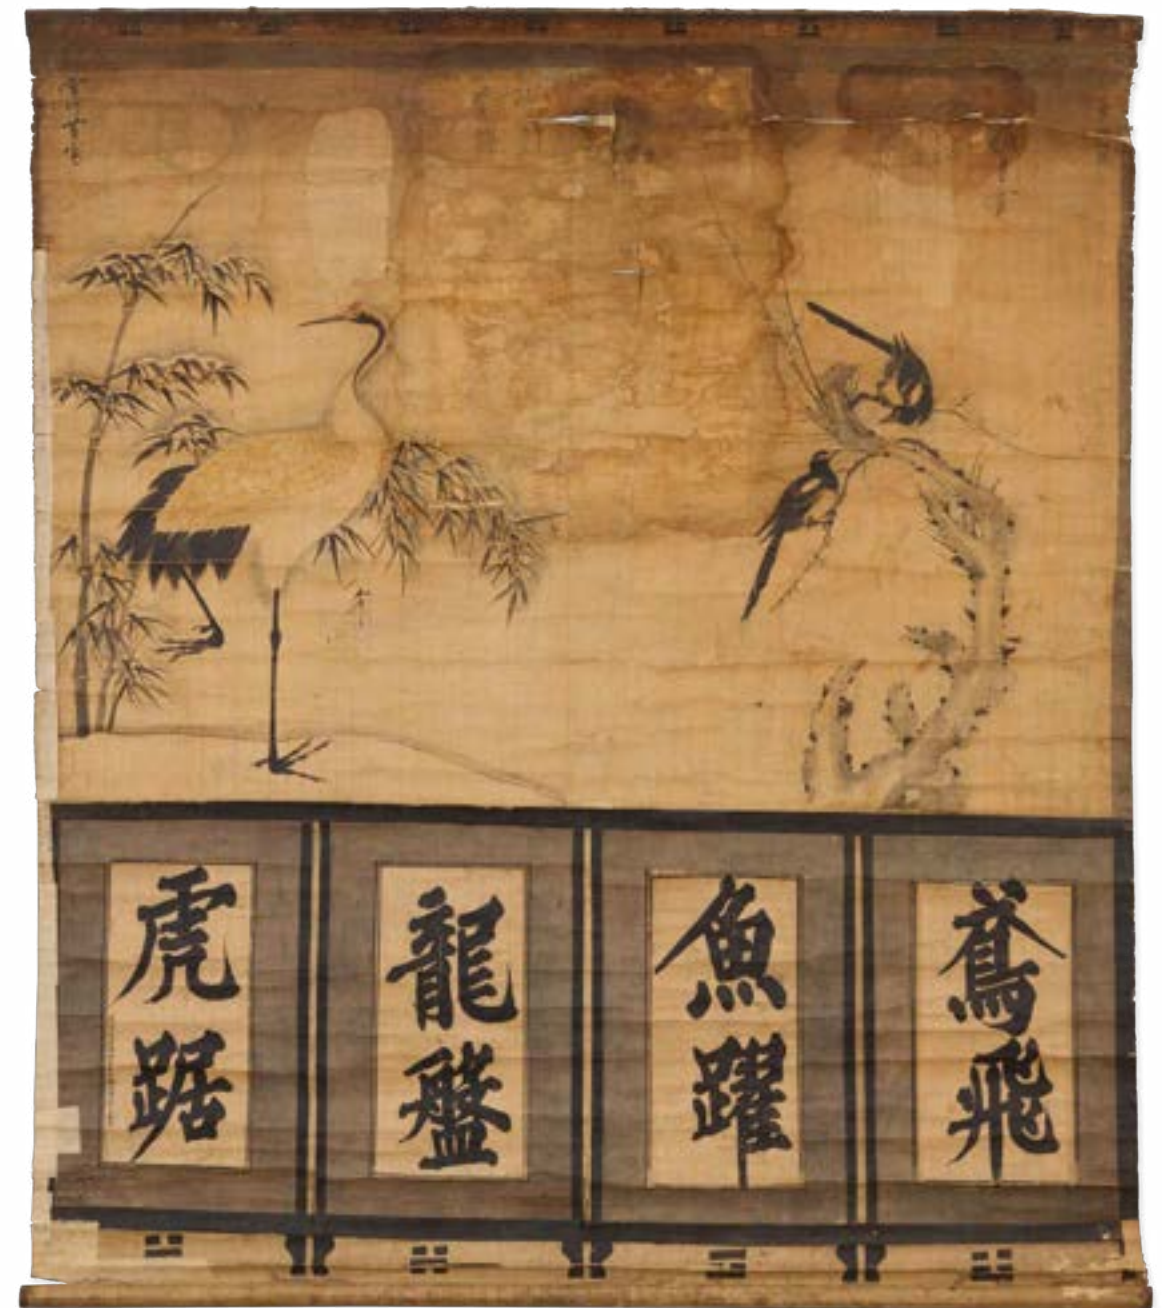 鳶飛
魚躍
龍盤
虎踞